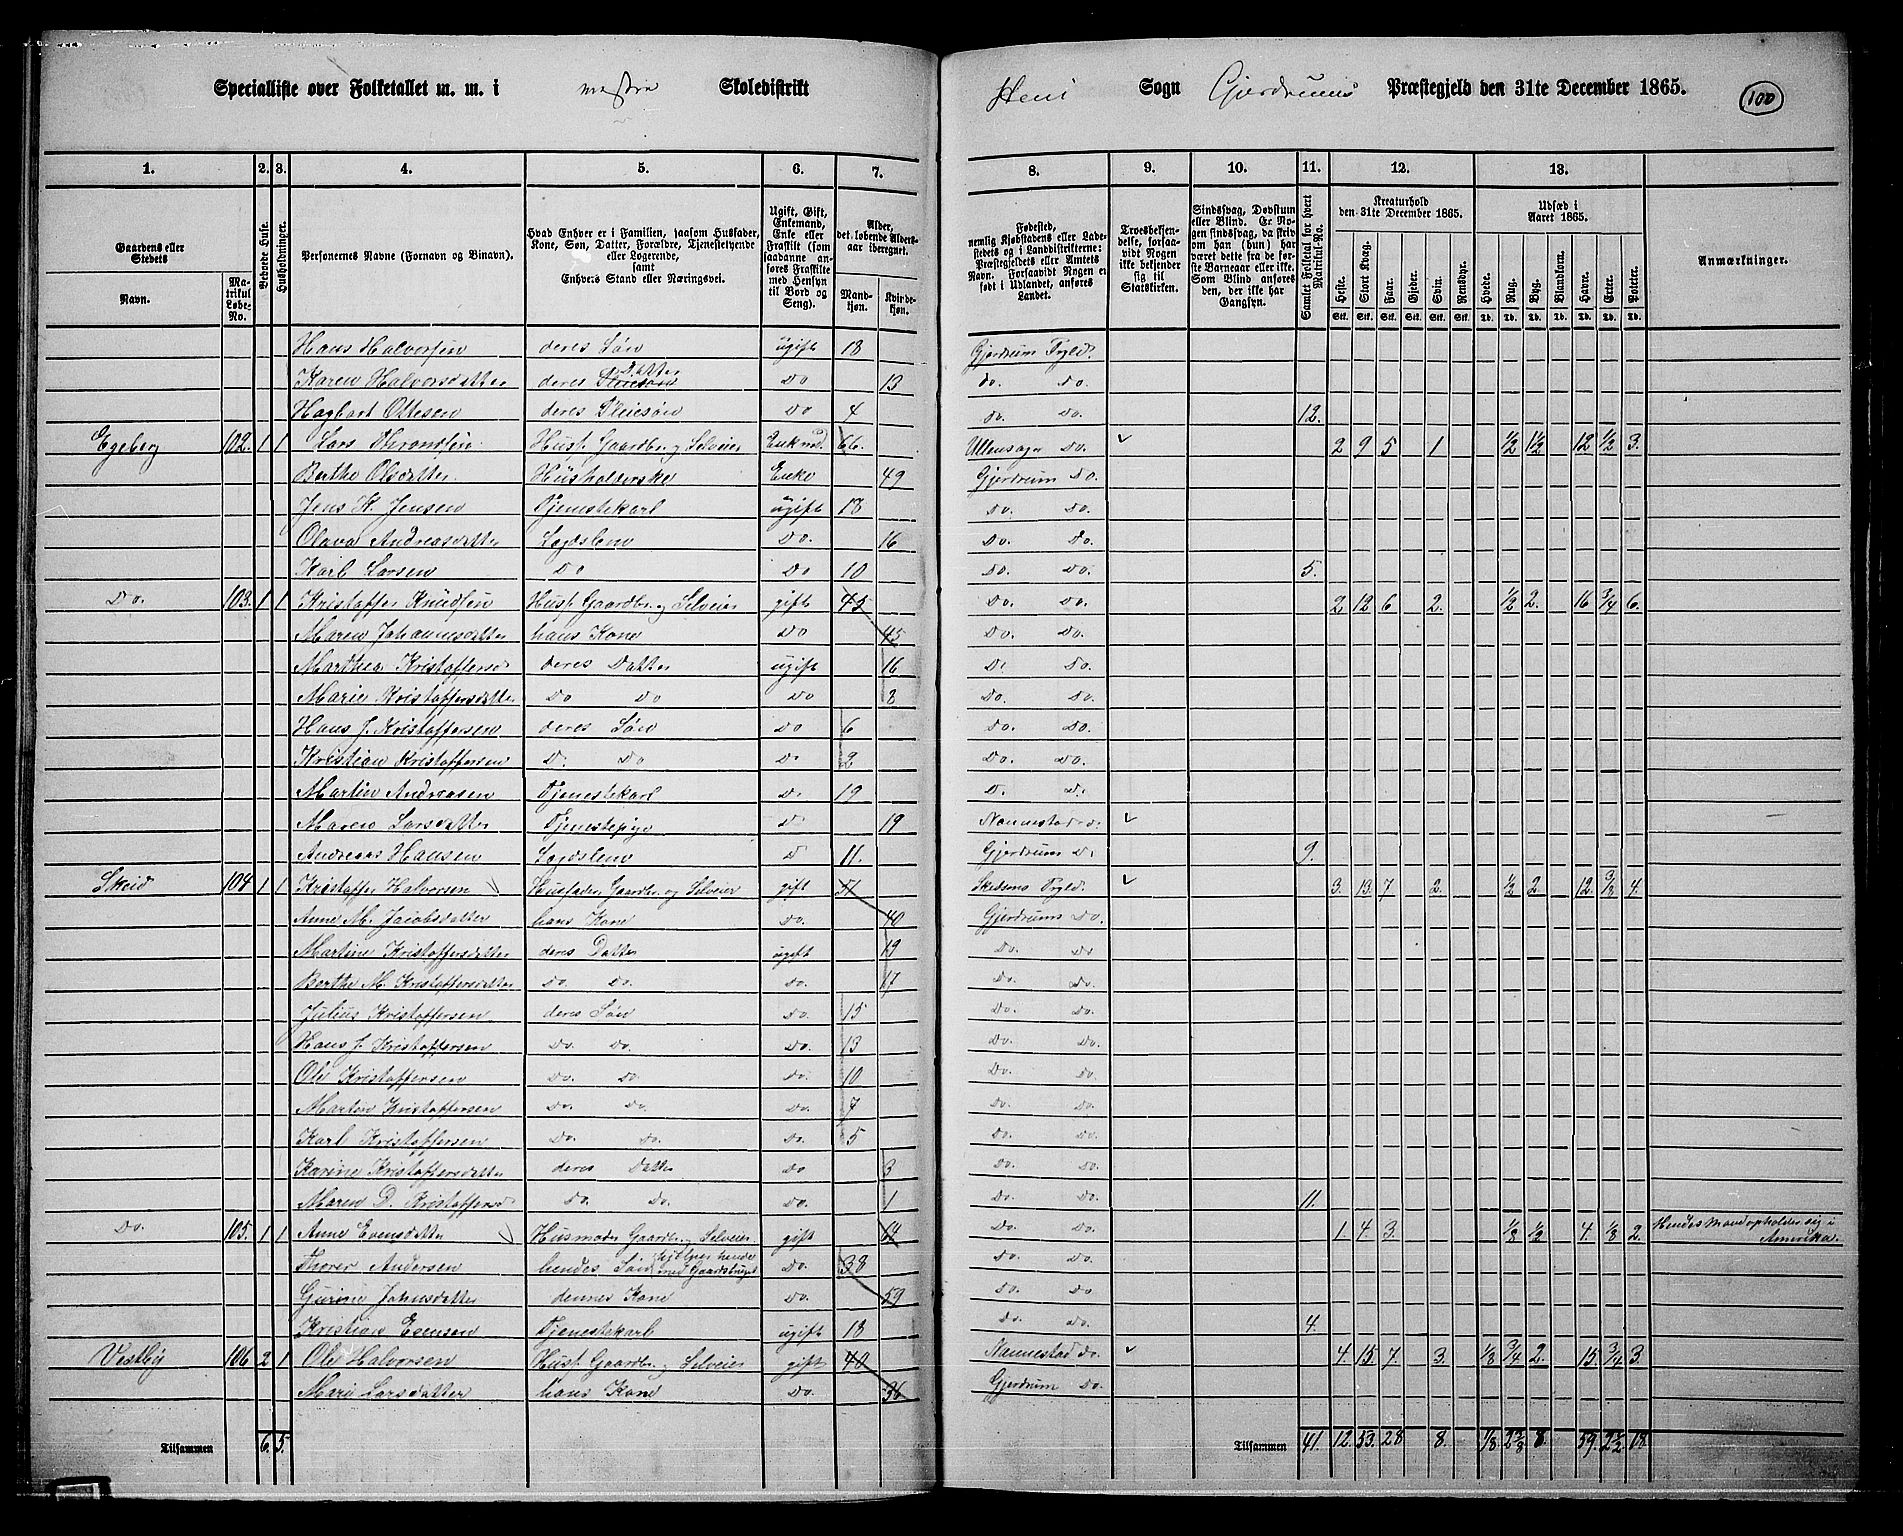 Specialliste over Folketallet m. m. i vestre Skoledistrikt Heni Sogn Gjerdrums Præstegjeld den 31te December 1865. 100
1. 2. 3. 4. 5. 6. 7. 8. 9. 10. 11. 12. 13.
Gaardens eller Stedets
Navn. Matrikul Løbe-No.
Beboede Huse.
Husholdninger.
Personernes Navne (Fornavn og Binavn).
Hvad Enhver er i Familien, saasom Husfader, Kone, Søn, Datter, Forældre, Tjenestetyende eller Logerende, samt Enhvers Stand eller Næringsvei.
Ugift, Gift, Enkemand, Enke eller Fraskilt (som saadanne anføres Fraskilte med Hensyn til Bord og Seng).
Alder, det løbende Aldersaar iberegnet.
Mandkjøn. Kvindekjøn.
Fødested, nemlig Kjøbstadens eller Ladestedets og i Landdistrikterne: Præstegjeldets eller Amtets Navn. Forsaavidt Nogen er født i Udlandet, anføres Landet.
Troesbekjendelse, forsaavidt Nogen ikke bekjender sig til Statskirken.
Sindssvag, Døvstum eller Blind. Er Nogen sindssvag, da skriv om han (hun) har været dette fra de første Barneaar eller ikke. Som Blind anføres den, der ikke har Gangsyn.
Samlet Folketal for hvert Matrikul-No.
Kreaturhold den 31te December 1865.
Heste. Stort Kvæg. Faar. Gjeder. Svin. Rensdyr.
Udsæd i Aaret 1865.
Hvede. Rug. Byg. Blandkorn. Havre. Erter. Poteter.
Anmærkninger.
Hans Halvorsen deres Søn ugift 18 Gjerdrum Prgld.
Karen Halvorsdatter deres Datter Do 13 Do. Do.
Hagbart Ottesen deres Pleiesøn Do 4 Do. Do. 12.
Egeberg 102. 1 1 Lars Throndsen Husf. Gaardbr. og Selveier Enkmd 66 Ullensager Do. 2 9 5 1 1/2 1 1/2 12 1/2 3.
Berthe Olsdatter Husholderske Enke 49 Gjerdrum Do.
Jens K. Jensen Tjenestekarl ugift 18 Do. Do.
Olava Andreasdatter Logdslem Do. 16 Do. Do.
Karl Larsen Do Do 10 Do. Do. 5.
Do. 103. 1 1 Kristoffer Knudsen Husf. Gaardbr. og Selveier gift 45 Do. Do. 2 12 6 2. 1/2 2. 16 3/4 6.
Maren Johannesdatter hans Kone Do 45 Do. Do.
Marthea Kristoffersd deres Datter ugift 16 D. Do.
Marie Kristoffersdatter Do Do Do 8 Do. Do.
Hans J. Kristoffersen deres Søn Do 6 Do. Do.
Kristian Kristoffersen D. Do D. 2 Do. Do.
Martin Andreasen Tjenestekarl D. 19 D. D.
Maren Larsdatter Tjenestepige D 19 Nannestad D.
Andreas Hansen Logdslem D 11. Gjerdrum D. 9.
Skeid 104 1 1 Kristoffer Halvorsen Husfader, Gaardbr. og Selveier gift 51 Skedsmo Prgld. 3. 13. 7 2. 1/2 2. 12. 3/8 4.
Anne M. Jacobsdatter hans Kone Do. 40 Gjerdrum Do.
Martine Kristoffersdatter deres Datter ugift 19 Do. Do
Berthe M. Kristoffersdatter Do. Do. Do. 17 Do. Do.
Julius Kristoffersen deres Søn Do. 15 Do. Do.
Hans J. Kristoffersen Do. Do. Do. 13 Do. Do.
Ole Kristoffersen Do. Do Do. 10 Do. Do.
Martin Kristoffersen Do. Do. Do. 7 Do. Do.
Karl Kristoffersen Do. Do. Do. 5 Do. Do.
Karine Kristoffersdatter deres Datter Do 3 Do. Do.
Maren D. Kristoffersd Do. Do. Do. 1 Do. Do. 11.
Do. 105. 1 1 Anne Evensdatter Husmoder Gaardbr. og Selveier gift 61 Do. Do. 1. 4. 3. 1/8 1/2 4. 1/8 2. Hendes Mand opholder sig i Amerika.
Therer Andersen hendes Søn hjelper hende med Gaardsbruget Do. 38 Do. Do.
Gurine Johnsdatter dennes Kone Do. 59 Do. Do.
Kristian Evensen Tjenestekarl ugift 18 Do. Do. 4.
Vestby 106 2 1 Ole Halvorsen Husf. Gaardbr. og Selveier gift 40 Nannestad Do. 4. 15. 7. 3. 1/8 3/4 2. 15. 3/4 3.
Marie Larsdatter hans Kone Do. 36 Gjerdrum Do.
Tilsammen 6. 5. Tilsammen 41. 12. 53. 28 8. 1/8 2 3/8 8. 59. 2 1/2 18